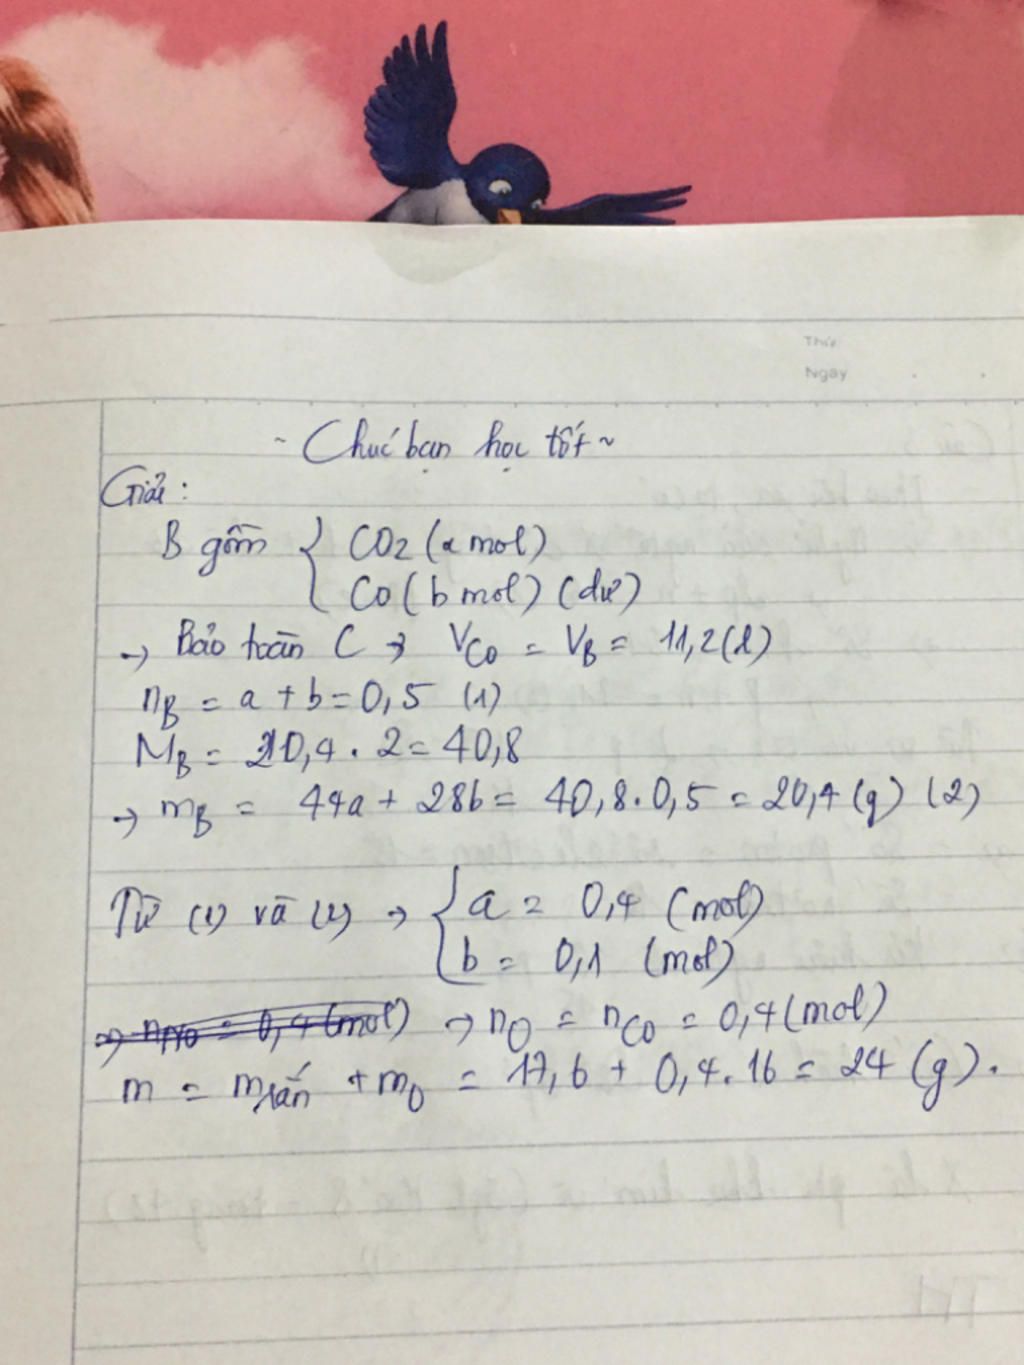 Thứ
Ngày
~ Chúc bạn học tốt ~
Giải :
B gồm { CO2 (a mol)
CO (b mol) (dư)
→ Bảo toàn C → VCO = VB = 11,2(l)
nB = a + b = 0,5 (1)
MB = 20,4 . 2 = 40,8
→ mB = 44a + 28b = 40,8.0,5 = 20,4 (g) (2)
Từ (1) và (2) → { a = 0,4 (mol)
b = 0,1 (mol)
→ nO = nCO = 0,4 (mol)
m = mrắn + mO = 17,6 + 0,4.16 = 24 (g).